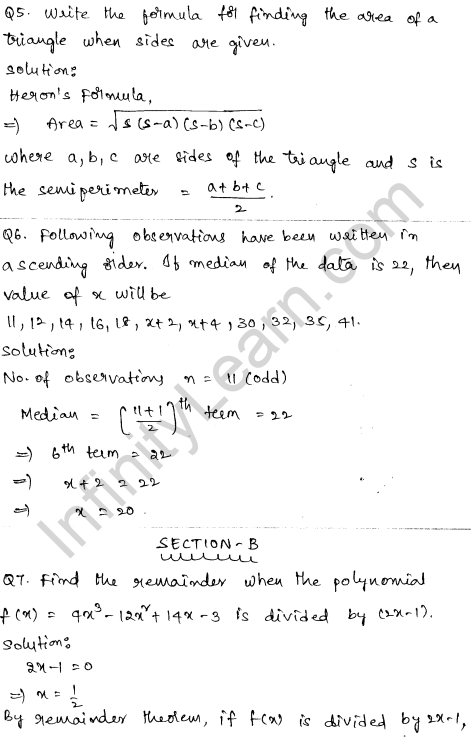 Q5. Write the formula for finding the area of a
triangle when sides are given.
Solution:
Heron's Formula,
⇒ Area = √s(s-a)(s-b)(s-c)
where a, b, c are sides of the triangle and s is
the semiperimeter = (a+b+c)/2.
Q6. Following observations have been written in
ascending order. If median of the data is 22, then
value of x will be
11, 12, 14, 16, 18, x+2, x+4, 30, 32, 35, 41.
Solution:
No. of observations n = 11 (odd)
Median = [(11+1)/2]th term = 22
⇒ 6th term = 22
⇒ x+2 = 22
⇒ x = 20.
SECTION-B
Q7. Find the remainder when the polynomial
f(x) = 4x³-12x²+14x-3 is divided by (2x-1).
Solution:
2x-1 = 0
⇒ x = 1/2
By remainder theorem, if f(x) is divided by 2x-1,
InfinityLearn.com